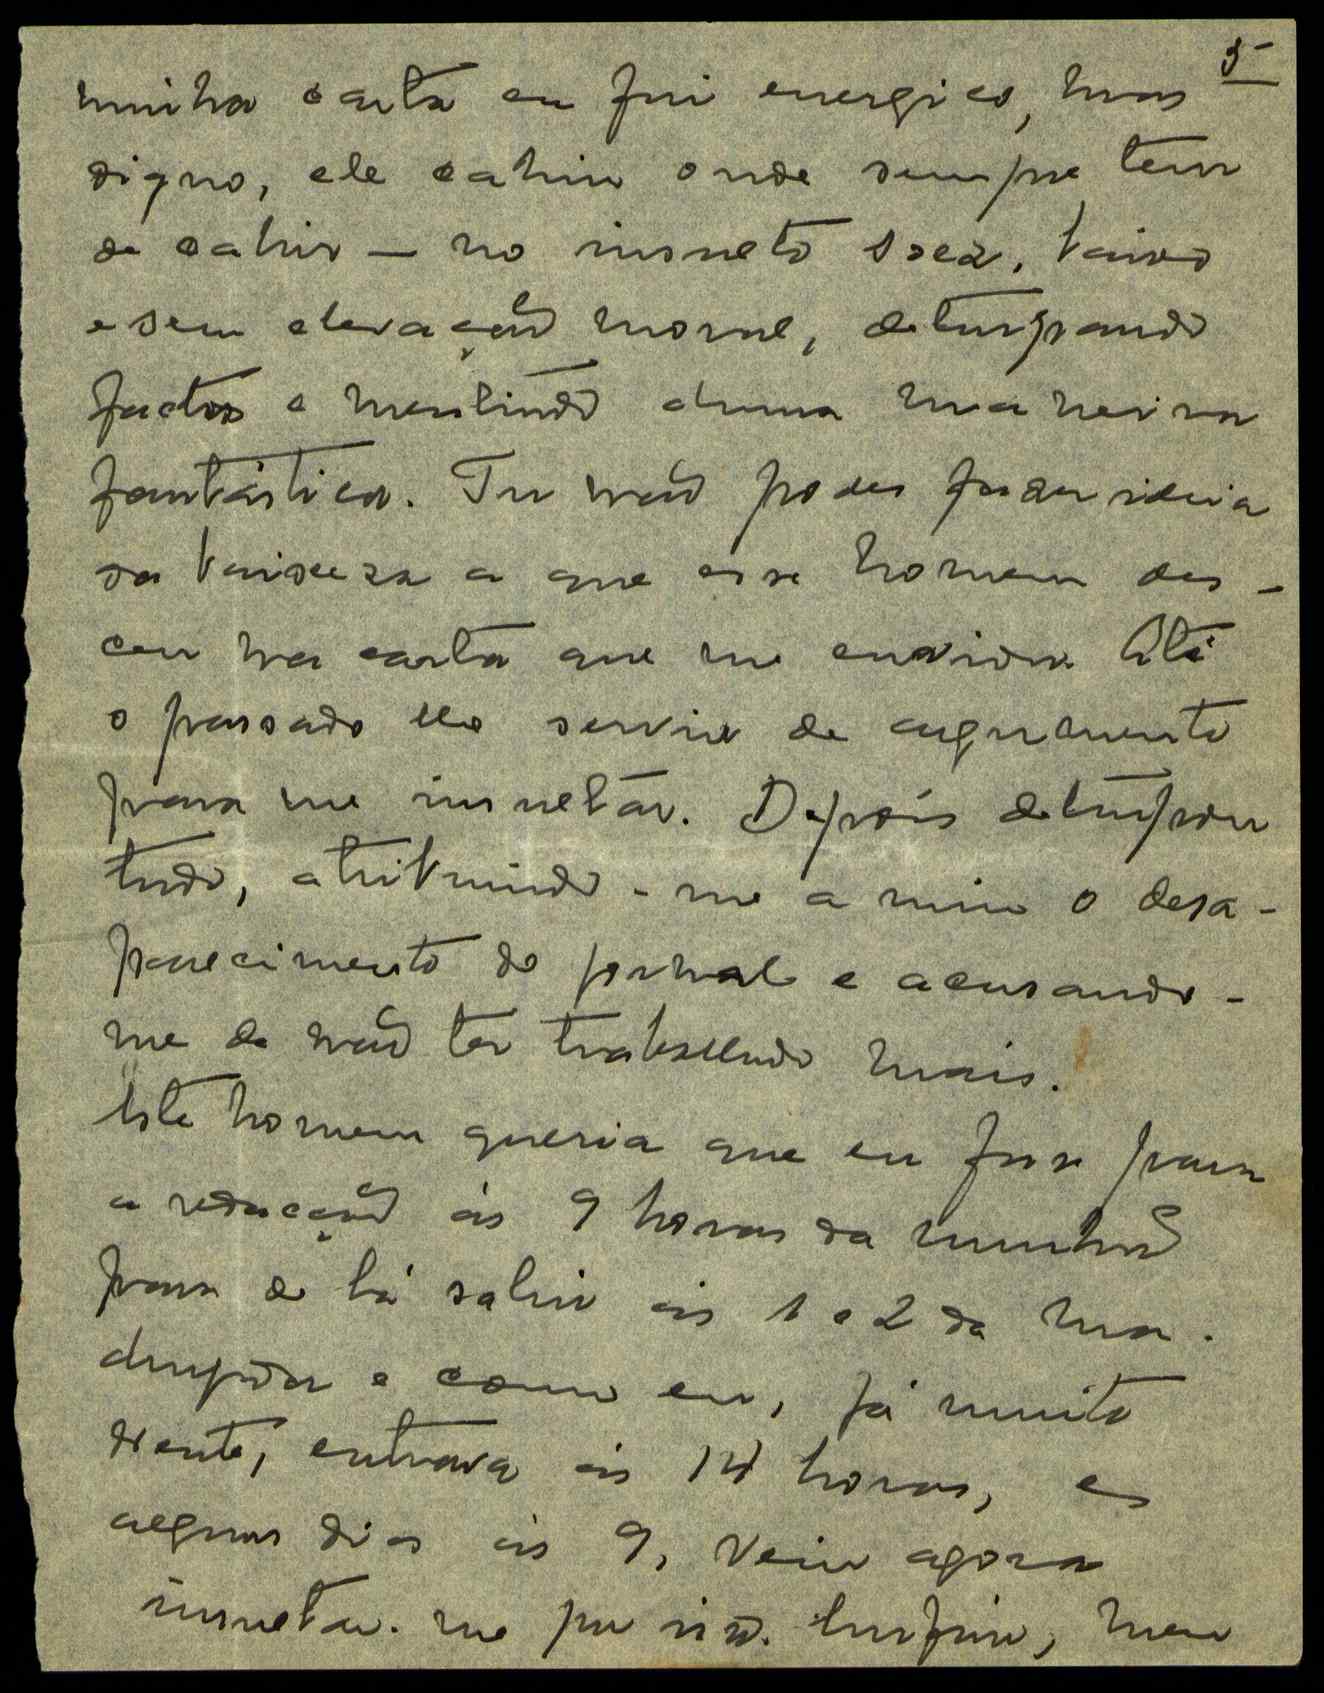 5
minha carta eu fui energico, mas
digno, ele cahiu onde sempre tem
de cahir — no insulto soez, baixo
e sem elevação moral, deturpando
factos e mentindo duma maneira
fantástica. Tu não podes fazer ideia
da baixeza a que esse homem des-
ceu na carta que me enviou. Até
o passado lhe serviu de argumento
para me insultar. Depois deturpou
tudo, atribuindo-me a mim o desa-
parecimento do jornal e acusando-
me de não ter trabalhado mais.
Este homem queria que eu fosse para
a redacção ás 9 horas da manhã
para de lá sahir ás 1 e 2 da ma-
drugada e como eu, já muito
doente, entrava ás 14 horas, e
alguns dias ás 9, veiu agora
insultar-me por isso. Emfim, meu